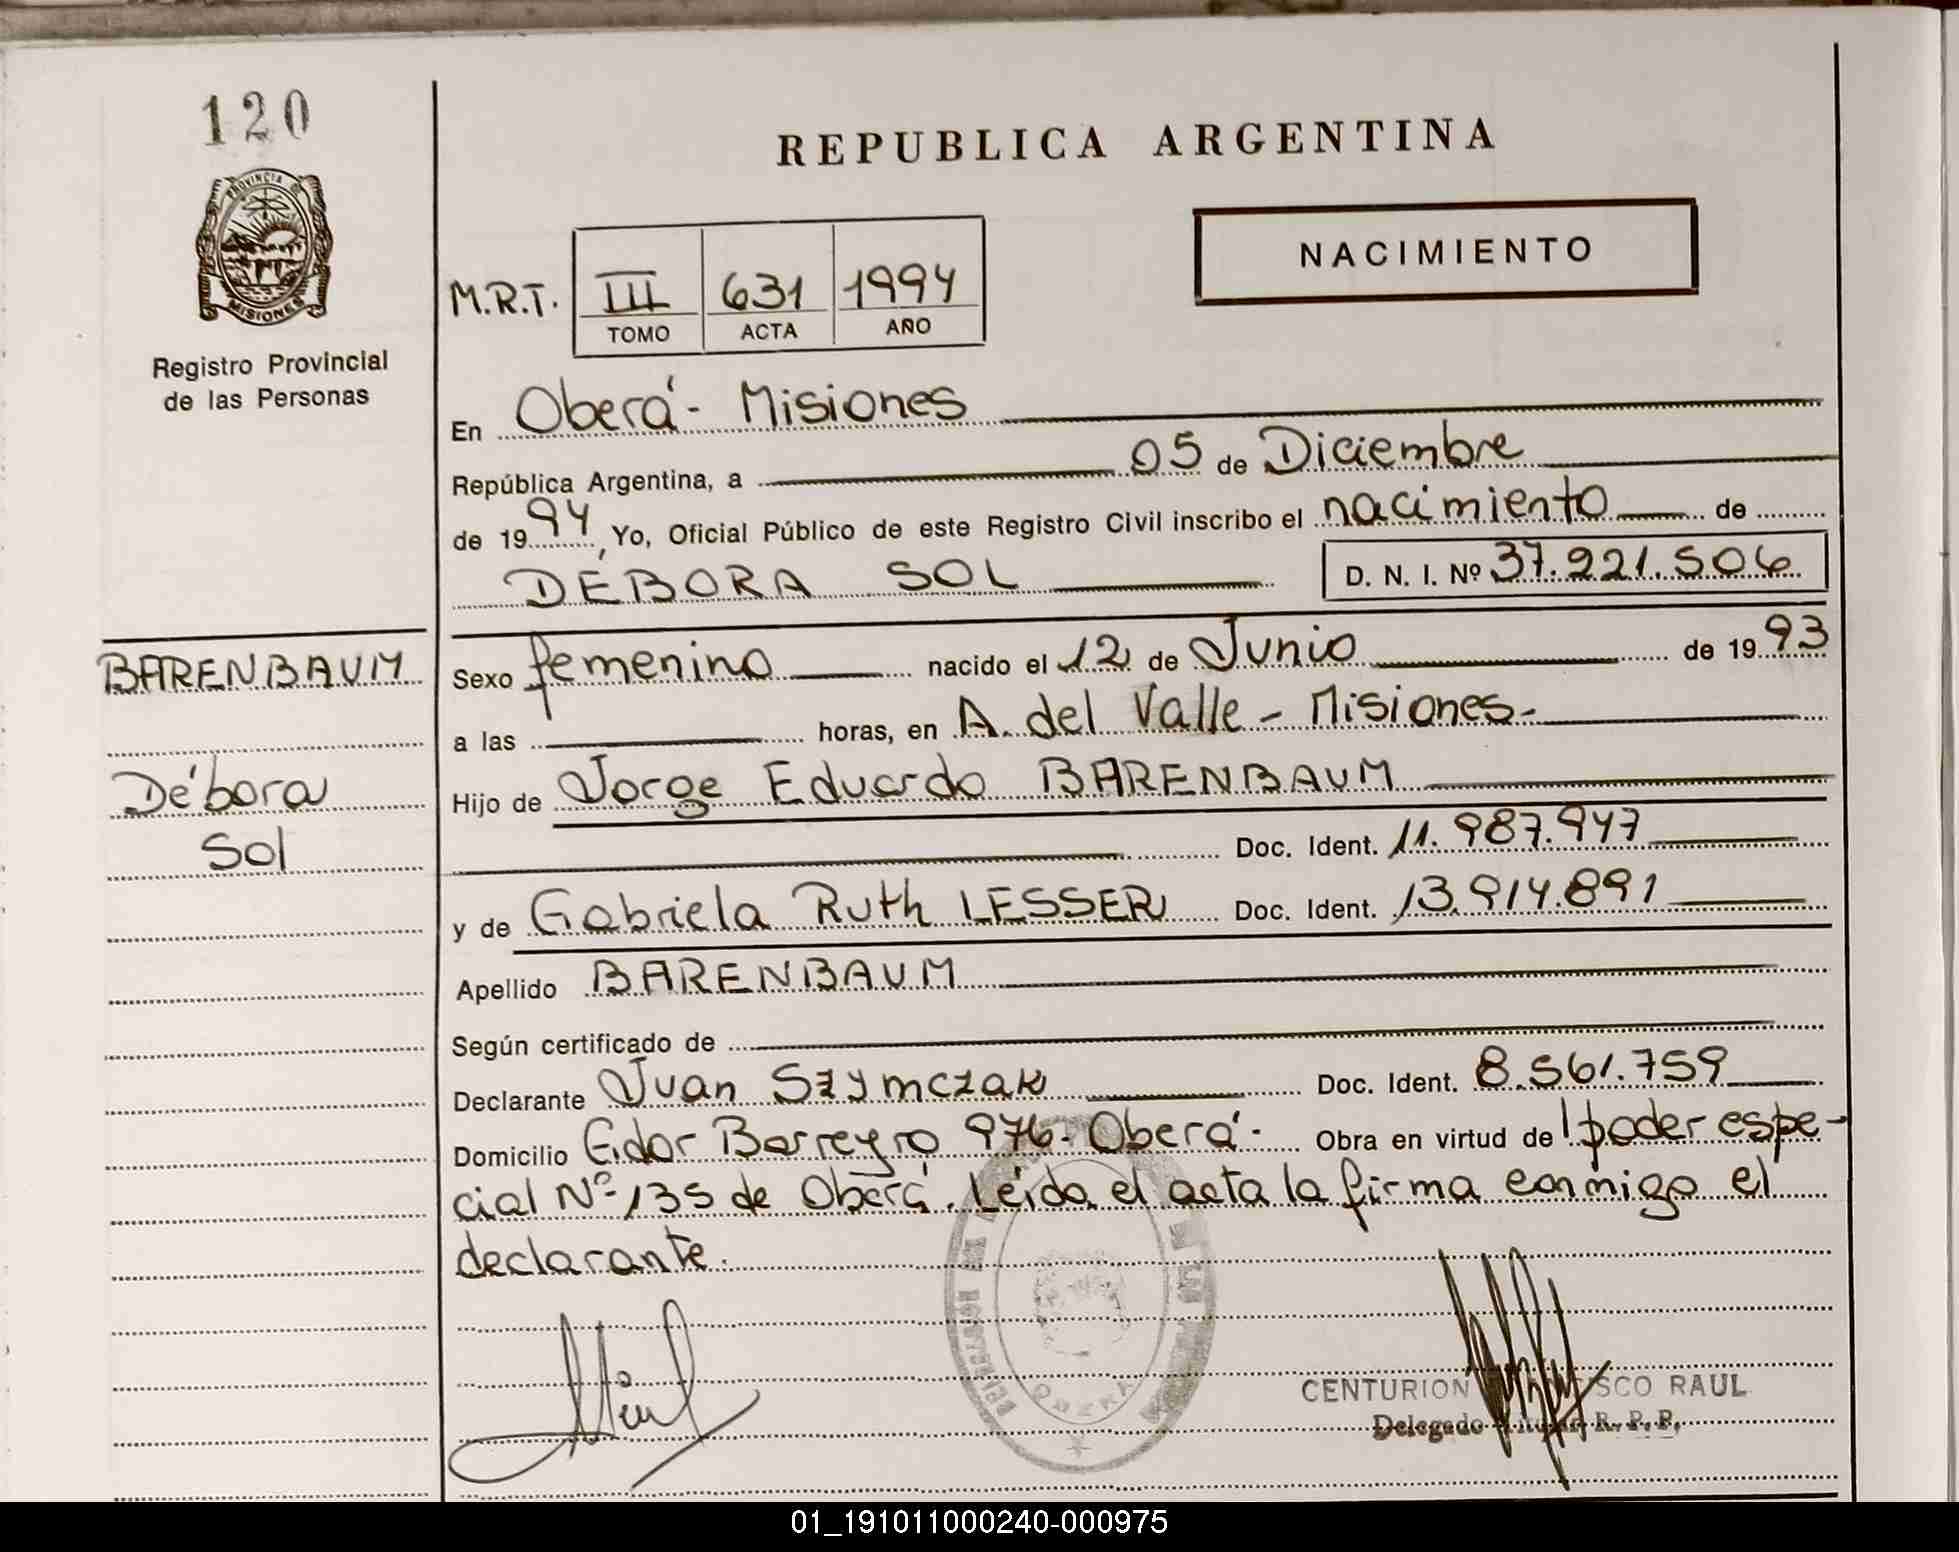 120
PROVINCIA DE
MISIONES
Registro Provincial
de las Personas
REPUBLICA ARGENTINA
NACIMIENTO
M.R.T. III 631 1994
TOMO ACTA AÑO
En Oberá - Misiones
República Argentina, a 05 de Diciembre
de 1994, Yo, Oficial Público de este Registro Civil inscribo el nacimiento de
DÉBORA SOL D. N. I. Nº 37.221.506
BARENBAUM
Débora
Sol
Sexo femenino nacido el 12 de Junio de 1993
a las horas, en A. del Valle - Misiones-
Hijo de Jorge Eduardo BARENBAUM
Doc. Ident. 11.987.947
y de Gabriela Ruth LESSER Doc. Ident. 13.914.891
Apellido BARENBAUM
Según certificado de
Declarante Juan Szymczak Doc. Ident. 8.561.759
Domicilio Eidor Barreyro 976- Oberá- Obra en virtud de 1 poder espe-
cial Nº 135 de Oberá. Leída el acta la firma conmigo el
declarante.
CENTURION SCO RAUL
Delegado R. P. P.
01_191011000240-000975